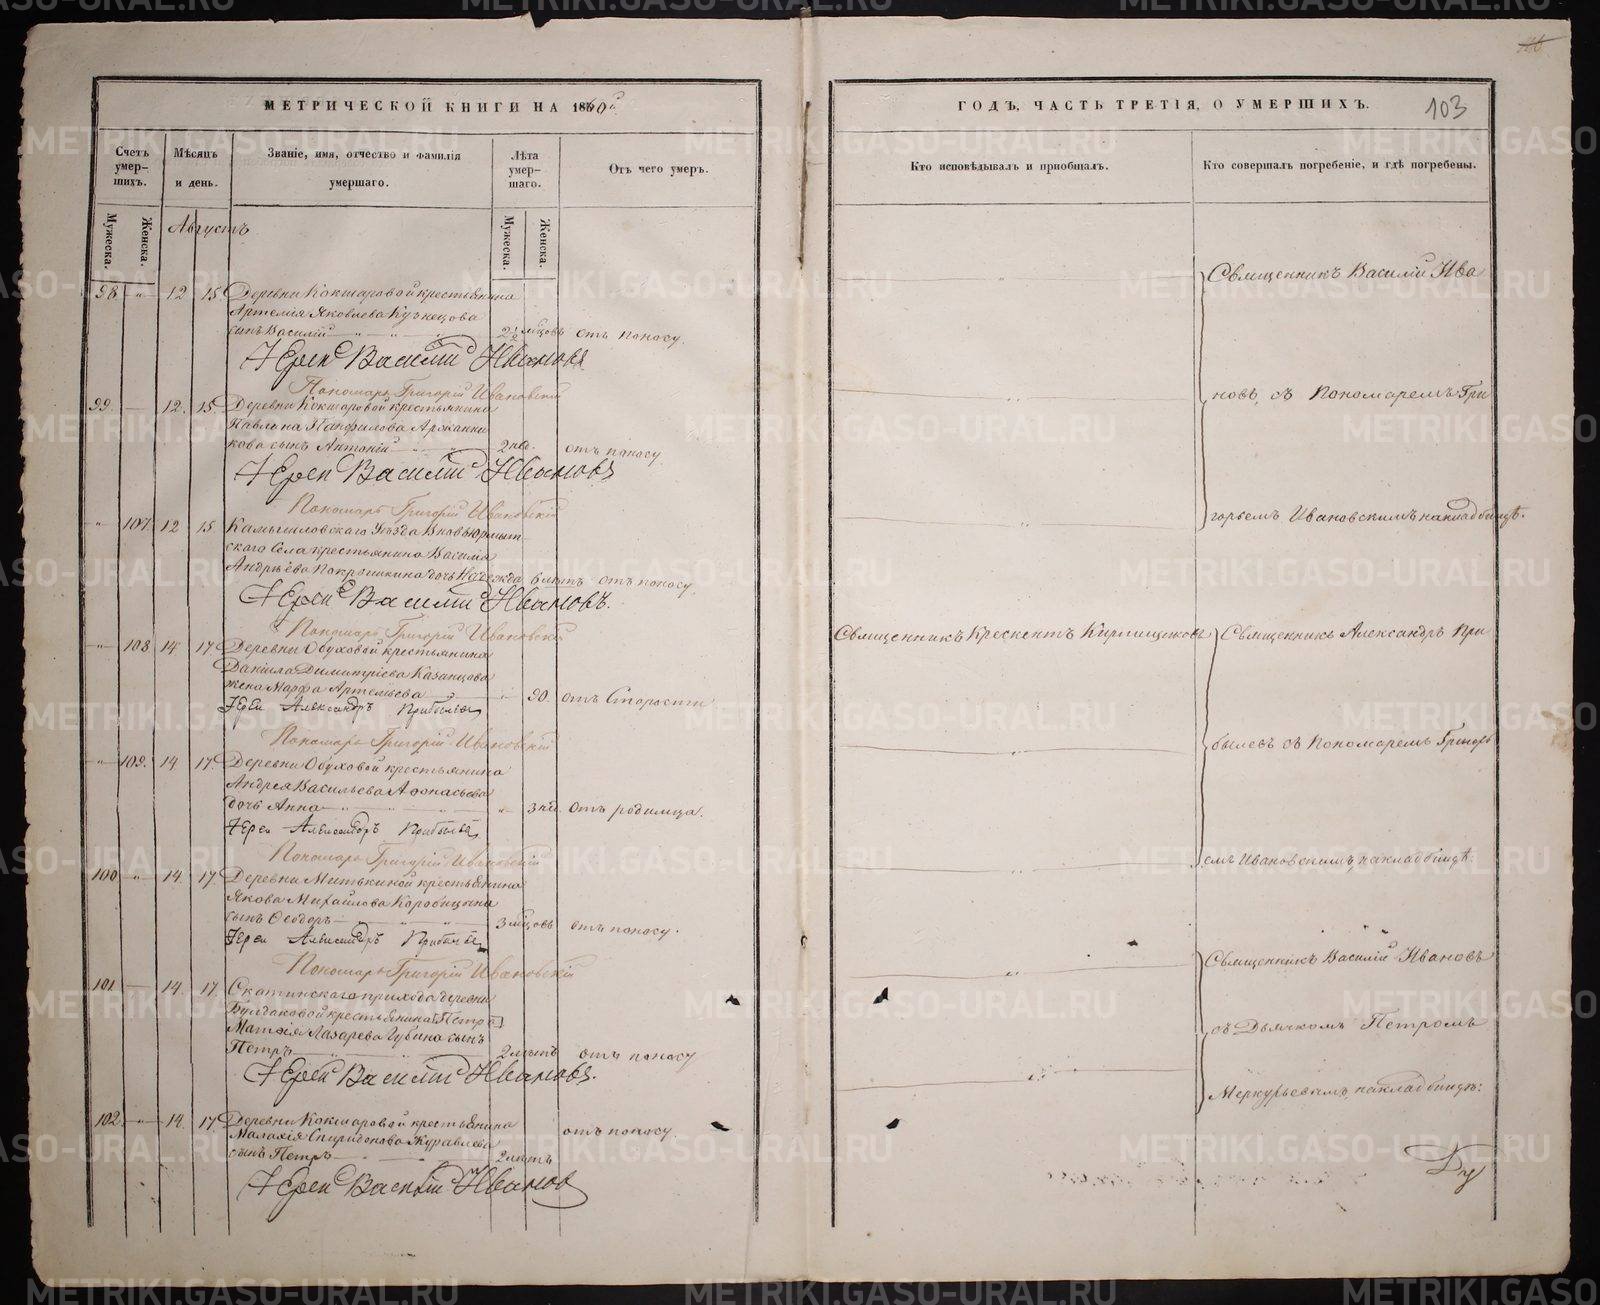 МЕТРИЧЕСКОЙ КНИГИ НА 1860й
Счетъ умер-шихъ.
Мѣсяцъ и день.
Званіе, имя, отчество и фамилія умершаго.
Лѣта умер-шаго.
Отъ чего умеръ.
Мужеска.
Женска.
Мужеска.
Женска.
Августъ
98 " 12 15 Деревни Кокшаровой крестьянина
Артемія Яковлева Кузнецова
сынъ Василій 2½ мѣсцовъ отъ поносу.
Іерей Василій Ивановъ
Пономарь Григорій Ивановскій
99. — 12. 15. Деревни Кокшаровой крестьянина
Павла Панфилова
кова сынъ Антоній 2 нед. отъ поносу
Іерей Василій Ивановъ
Пономарь Григорій Ивановскій
" 107 12 15. Камышловскаго Уѣзда Вновьюрмыт-
скаго Села крестьянина Василія
Андрѣева Покрышкина дочь Надежда 6 лѣтъ отъ поносу
Іерей Василій Ивановъ.
Пономарь Григорій Ивановскій
" 108 14 17 Деревни Обуховой крестьянина
Даніила Димитріева Казанцова
жена Марфа Артемьева " 90. отъ Старости
Іерей Александръ Прибылевъ
Пономарь Григорій Ивановскій
" 109. 14 17. Деревни Обуховой крестьянина
Андрея Васильева Афонасьева
дочь Анна " 3 нед. отъ родимца.
Іерей Александръ Прибылевъ
Пономарь Григорій Ивановскій
100 " 14. 17. Деревни Митькиной крестьянина
Якова Михайлова Коробицына
сынъ Ѳеодоръ 3 мѣсцовъ отъ поносу.
Іерей Александръ Прибылевъ
Пономарь Григорій Ивановскій
101 — 14. 17 Скатинскаго прихода деревни
Булдаковой крестьянина [Петра]
Матѳія Лазарева Губина сынъ
Петръ 2 лѣтъ отъ поносу
Іерей Василій Ивановъ.
102 " 14. 17. Деревни Кокшаровой крестьянина отъ поносу.
Малахія Спиридонова Журавлева
сынъ Петръ 2 лѣтъ
Іерей Василій Ивановъ
103
ГОДЪ, ЧАСТЬ ТРЕТІЯ, О УМЕРШИХЪ.
Кто исповѣдывалъ и пріобщалъ.
Кто совершалъ погребеніе, и гдѣ погребены.
Священникъ Василій Ива
новъ, съ Пономаремъ Гри
горьемъ Ивановскимъ на кладбищѣ.
Священникъ Крескентъ Кирпищиковъ
Священникъ Александръ При
былевъ съ Пономаремъ Григорь
емъ Ивановскимъ, на кладбищѣ.
Священникъ Василій Ивановъ
съ Дьячкомъ Петромъ
Меркурьевымъ, на кладбищѣ:
METRIKI.GASO-URAL.RU